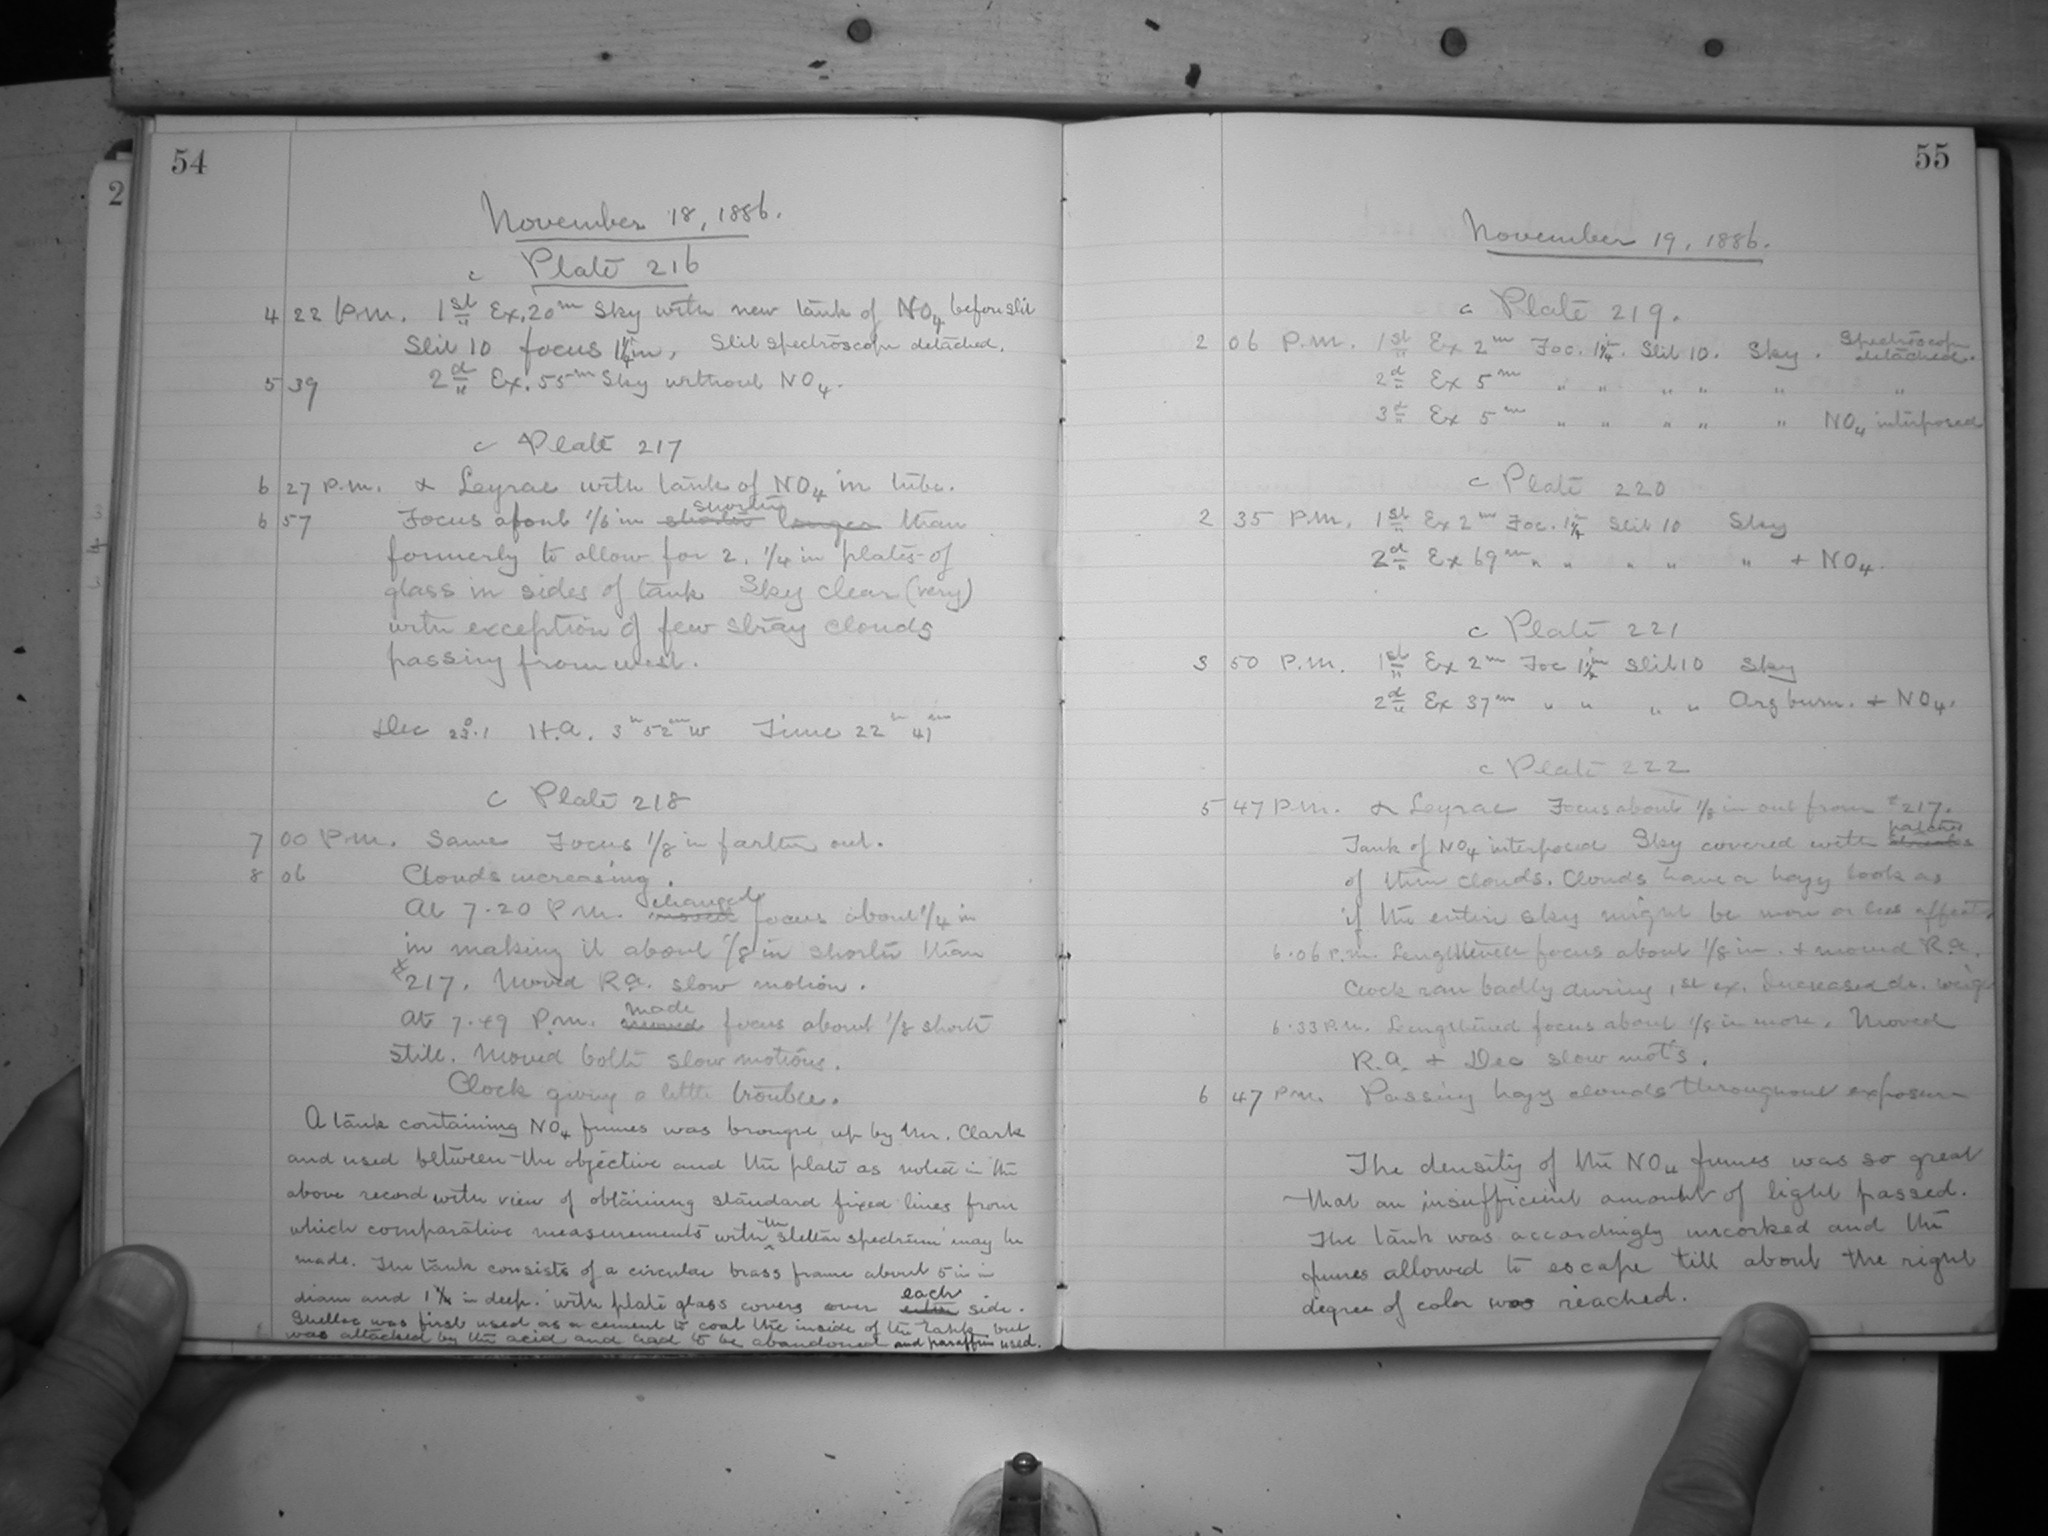 54
2
November 18, 1886.
c Plate 216
4 22 P.M. 1st Ex. 20m Sky with new tank of NO4 before slit
Slit 10 focus 1 1/4 in, Slit spectroscope detached.
5 39 2d Ex. 55m Sky without NO4.
c Plate 217
6 27 P.M. α Leyrae with tank of NO4 in tube.
6 57 Focus about 1/6 in shorter than
formerly to allow for 2. 1/4 in plates of
glass in sides of tank Sky clear (very)
with exception of few stray clouds
passing from west.
Dec H.A. 3h 52m W Time 22h 41m
c Plate 218
7 00 P.M. Same Focus 1/8 in farther out.
8 06 Clouds increasing.
At 7.20 P.M. changed focus about 1/4 in
in making it about 1/8 in shorter than
#217. Moved R.a. slow motion.
At 7.49 P.M. made focus about 1/8 shorter
still. Moved both slow motions.
Clock giving a little trouble.
A tank containing NO4 fumes was brought up by Mr. Clark
and used between the objective and the plate as noted in the
above record with view of obtaining standard fixed lines from
which comparative measurements with the stellar spectrum may be
made. The tank consists of a circular brass frame about 5 in in
diam and 1 1/4 in deep. with plate glass covers over each side.
Shellac was first used as a cement to coat the inside of the tank but
was attacked by the acid and had to be abandoned and paraffin used.
55
November 19, 1886.
c Plate 219.
2 06 P.M. 1st Ex 2m Foc. 1 1/4 in. Slit 10. Sky. Spectroscope detached.
2d Ex 5m " " " " " "
3d Ex 5m " " " " " NO4 interposed
c Plate 220
2 35 P.M. 1st Ex 2m Foc. 1 1/4 in Slit 10 Sky
2d Ex 69m " " " " " + NO4.
c Plate 221
3 50 P.M. 1st Ex 2m Foc 1 1/4 in Slit 10 Sky
2d Ex 37m " " " " Arg burn. + NO4.
c Plate 222
5 47 P.M. α Leyrae Focus about 1/8 in out from #217.
Tank of NO4 interposed Sky covered with patches
of thin clouds. Clouds have a hazy look as
if the entire sky might be more or less affected
6.06 P.M. Lengthened focus about 1/8 in. + moved R.a.
Clock ran badly during 1st ex. Increased dr. weight
6.33 P.M. Lengthened focus about 1/8 in more. Moved
R.a. + Dec slow mot's.
6 47 P.M. Passing hazy clouds throughout exposure
The density of the NO4 fumes was so great
that an insufficient amount of light passed.
The tank was accordingly uncorked and the
fumes allowed to escape till about the right
degree of color was reached.